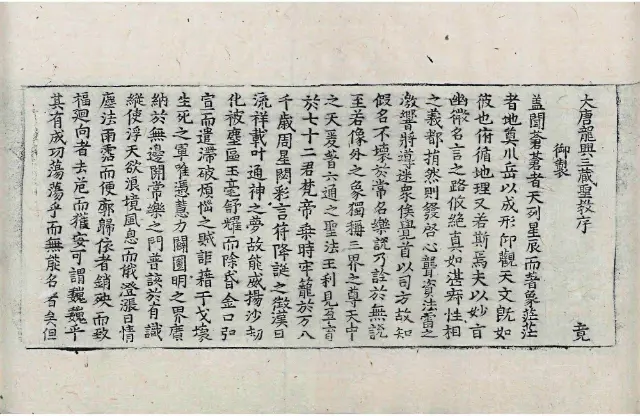 大唐龍興三藏聖教序
御製 竟
蓋聞蒼蒼者天列星辰而著象茫茫
者地奠川岳以成形仰觀天文旣如
彼也俯循地理又若斯焉夫以妙旨
幽微名言之路攸絶真如湛寂性相
之義都捐然則發啓心聾資法雷之
激響將導迷衆俟首以司方故知
假名不壞於常名樂說乃詮於無說
至若像外之象獨稱三界之尊天中
之天六通之聖法王利見孕育
於七十二君梵帝乘時牢籠於万八
千歲周星閟彩言符降誕之徵漢日
流祥載叶通神之夢故能威揚沙劫
化被塵區玉毫舒耀而除昏金口弘
宣而遣滯破煩惱之賊詎藉干戈壞
生死之軍唯憑慧力闢圓明之界廣
納於無邊開常樂之門普該於有識
縱使浮天欲浪境風息而俄澄漲日情
塵法雨霑而便廓歸依者銷殃而致
福廻向者去危而獲安可謂魏魏乎
其有成功蕩蕩乎而無能名者矣但